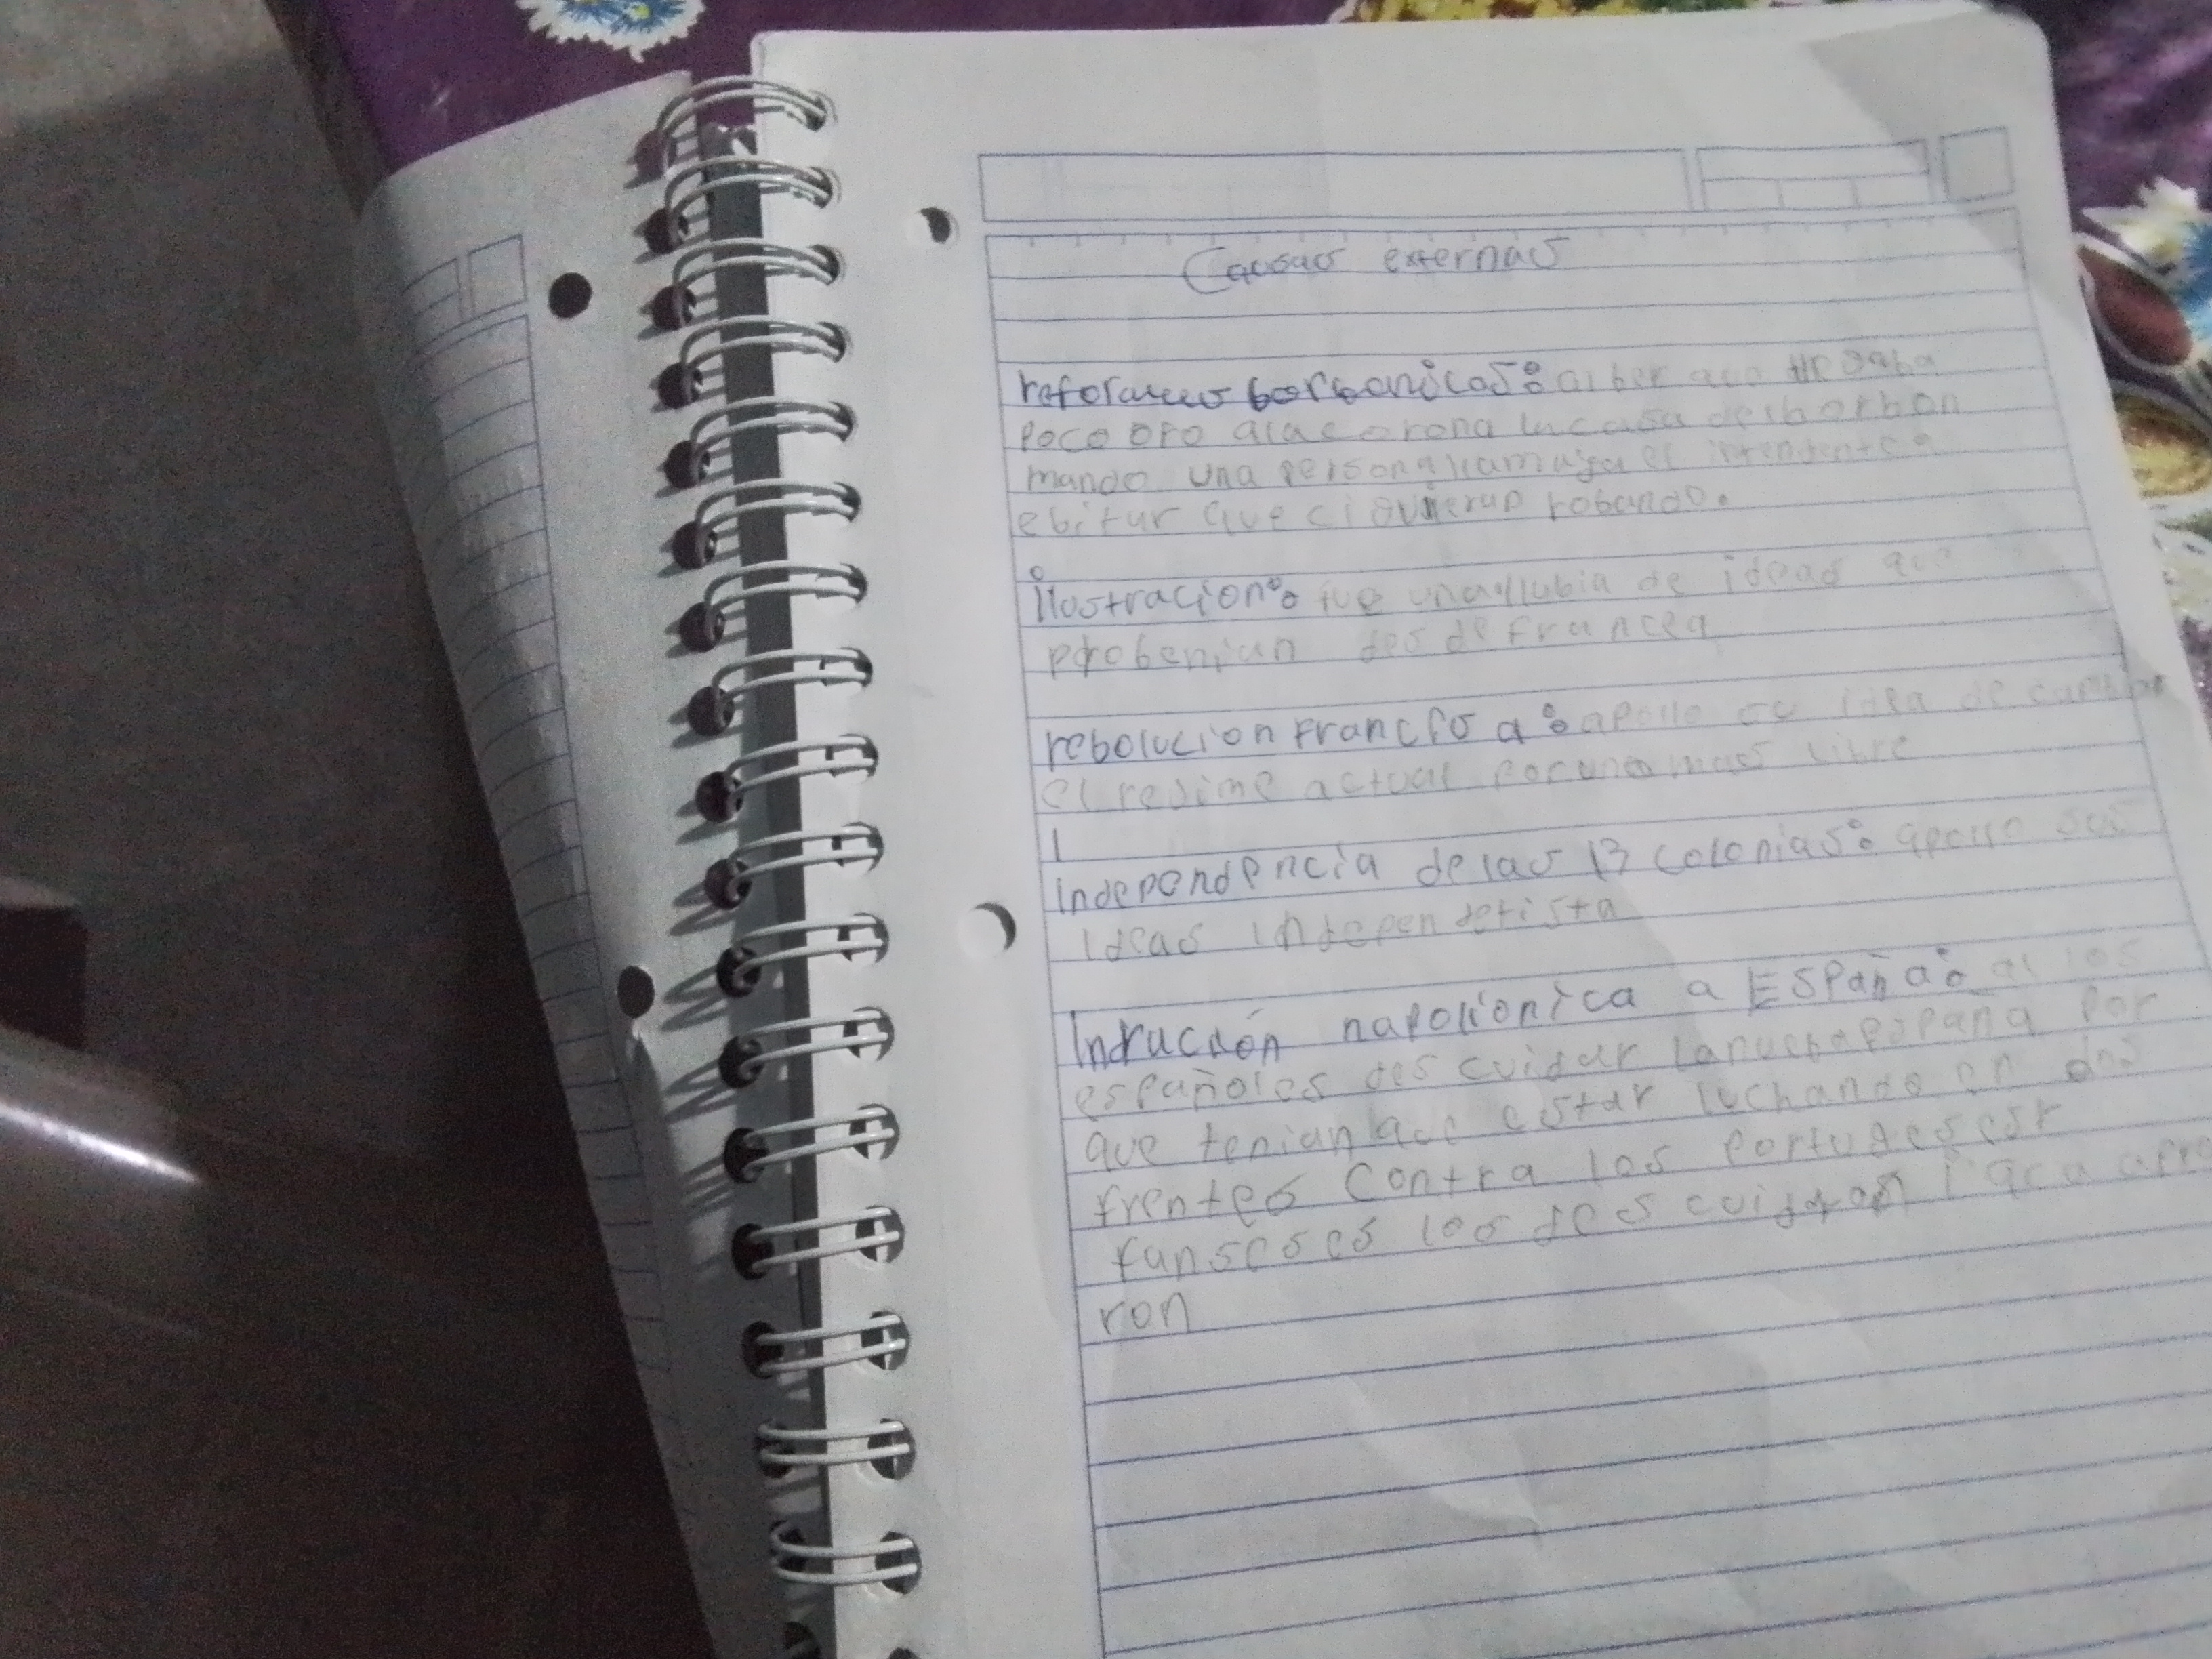 Causas externas
reformas borbonicas: al ber que llegaba
poco oro a la corona la casa de borbon
mando una persona llamaga el intendente a
ebitar que ciguieran robando.
ilostracion: fue una llubia de ideas que
probenian desde Francea
rebolucion Francesa: apollo su idea de cambiar
el regime actual por uno mas libre
independencia de las 13 colonias: apollo sus
ideas independetista
napolionica a España: al los
españoles descuidar la nueba españa por
que tenian que estar luchando en dos
frentes contra los portugeses
los descuidaron
ron